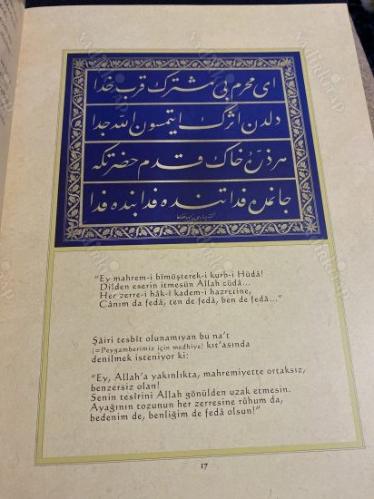 ای محرم بی مشترک قرب خدا
دلدن اثرک ایتمسون الله جدا
هر ذره خاک قدم حضرتکه
جانمده فدا تنده فدا بنده فدا
"Ey mahrem-i bîmüşterek-i kurb-i Hüdâ!
Dilden eserin itmesün Allah cüdâ...
Her zerre-i hâk-i kadem-i hazretine,
Cânım da fedâ, ten de fedâ, ben de fedâ..."
Şâiri tesbît olunamıyan bu na't
(=Peygamberimiz için medhiye) kıt'asında
denilmek isteniyor ki:
"Ey, Allah'a yakınlıkta, mahremiyette ortaksız,
benzersiz olan!
Senin tesîrini Allah gönülden uzak etmesin.
Ayağının tozunun her zerresine rûhum da,
bedenim de, benliğim de fedâ olsun!"
17